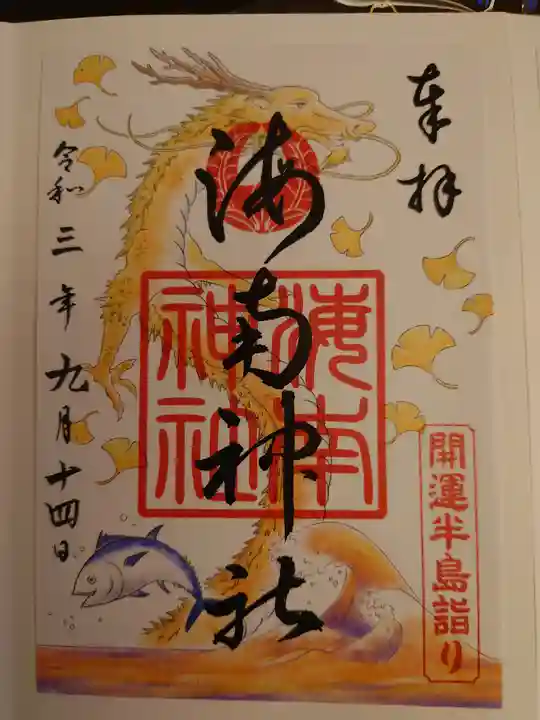 奉拝
開運半島詣り
海南神社
海南神社
令和三年九月十四日